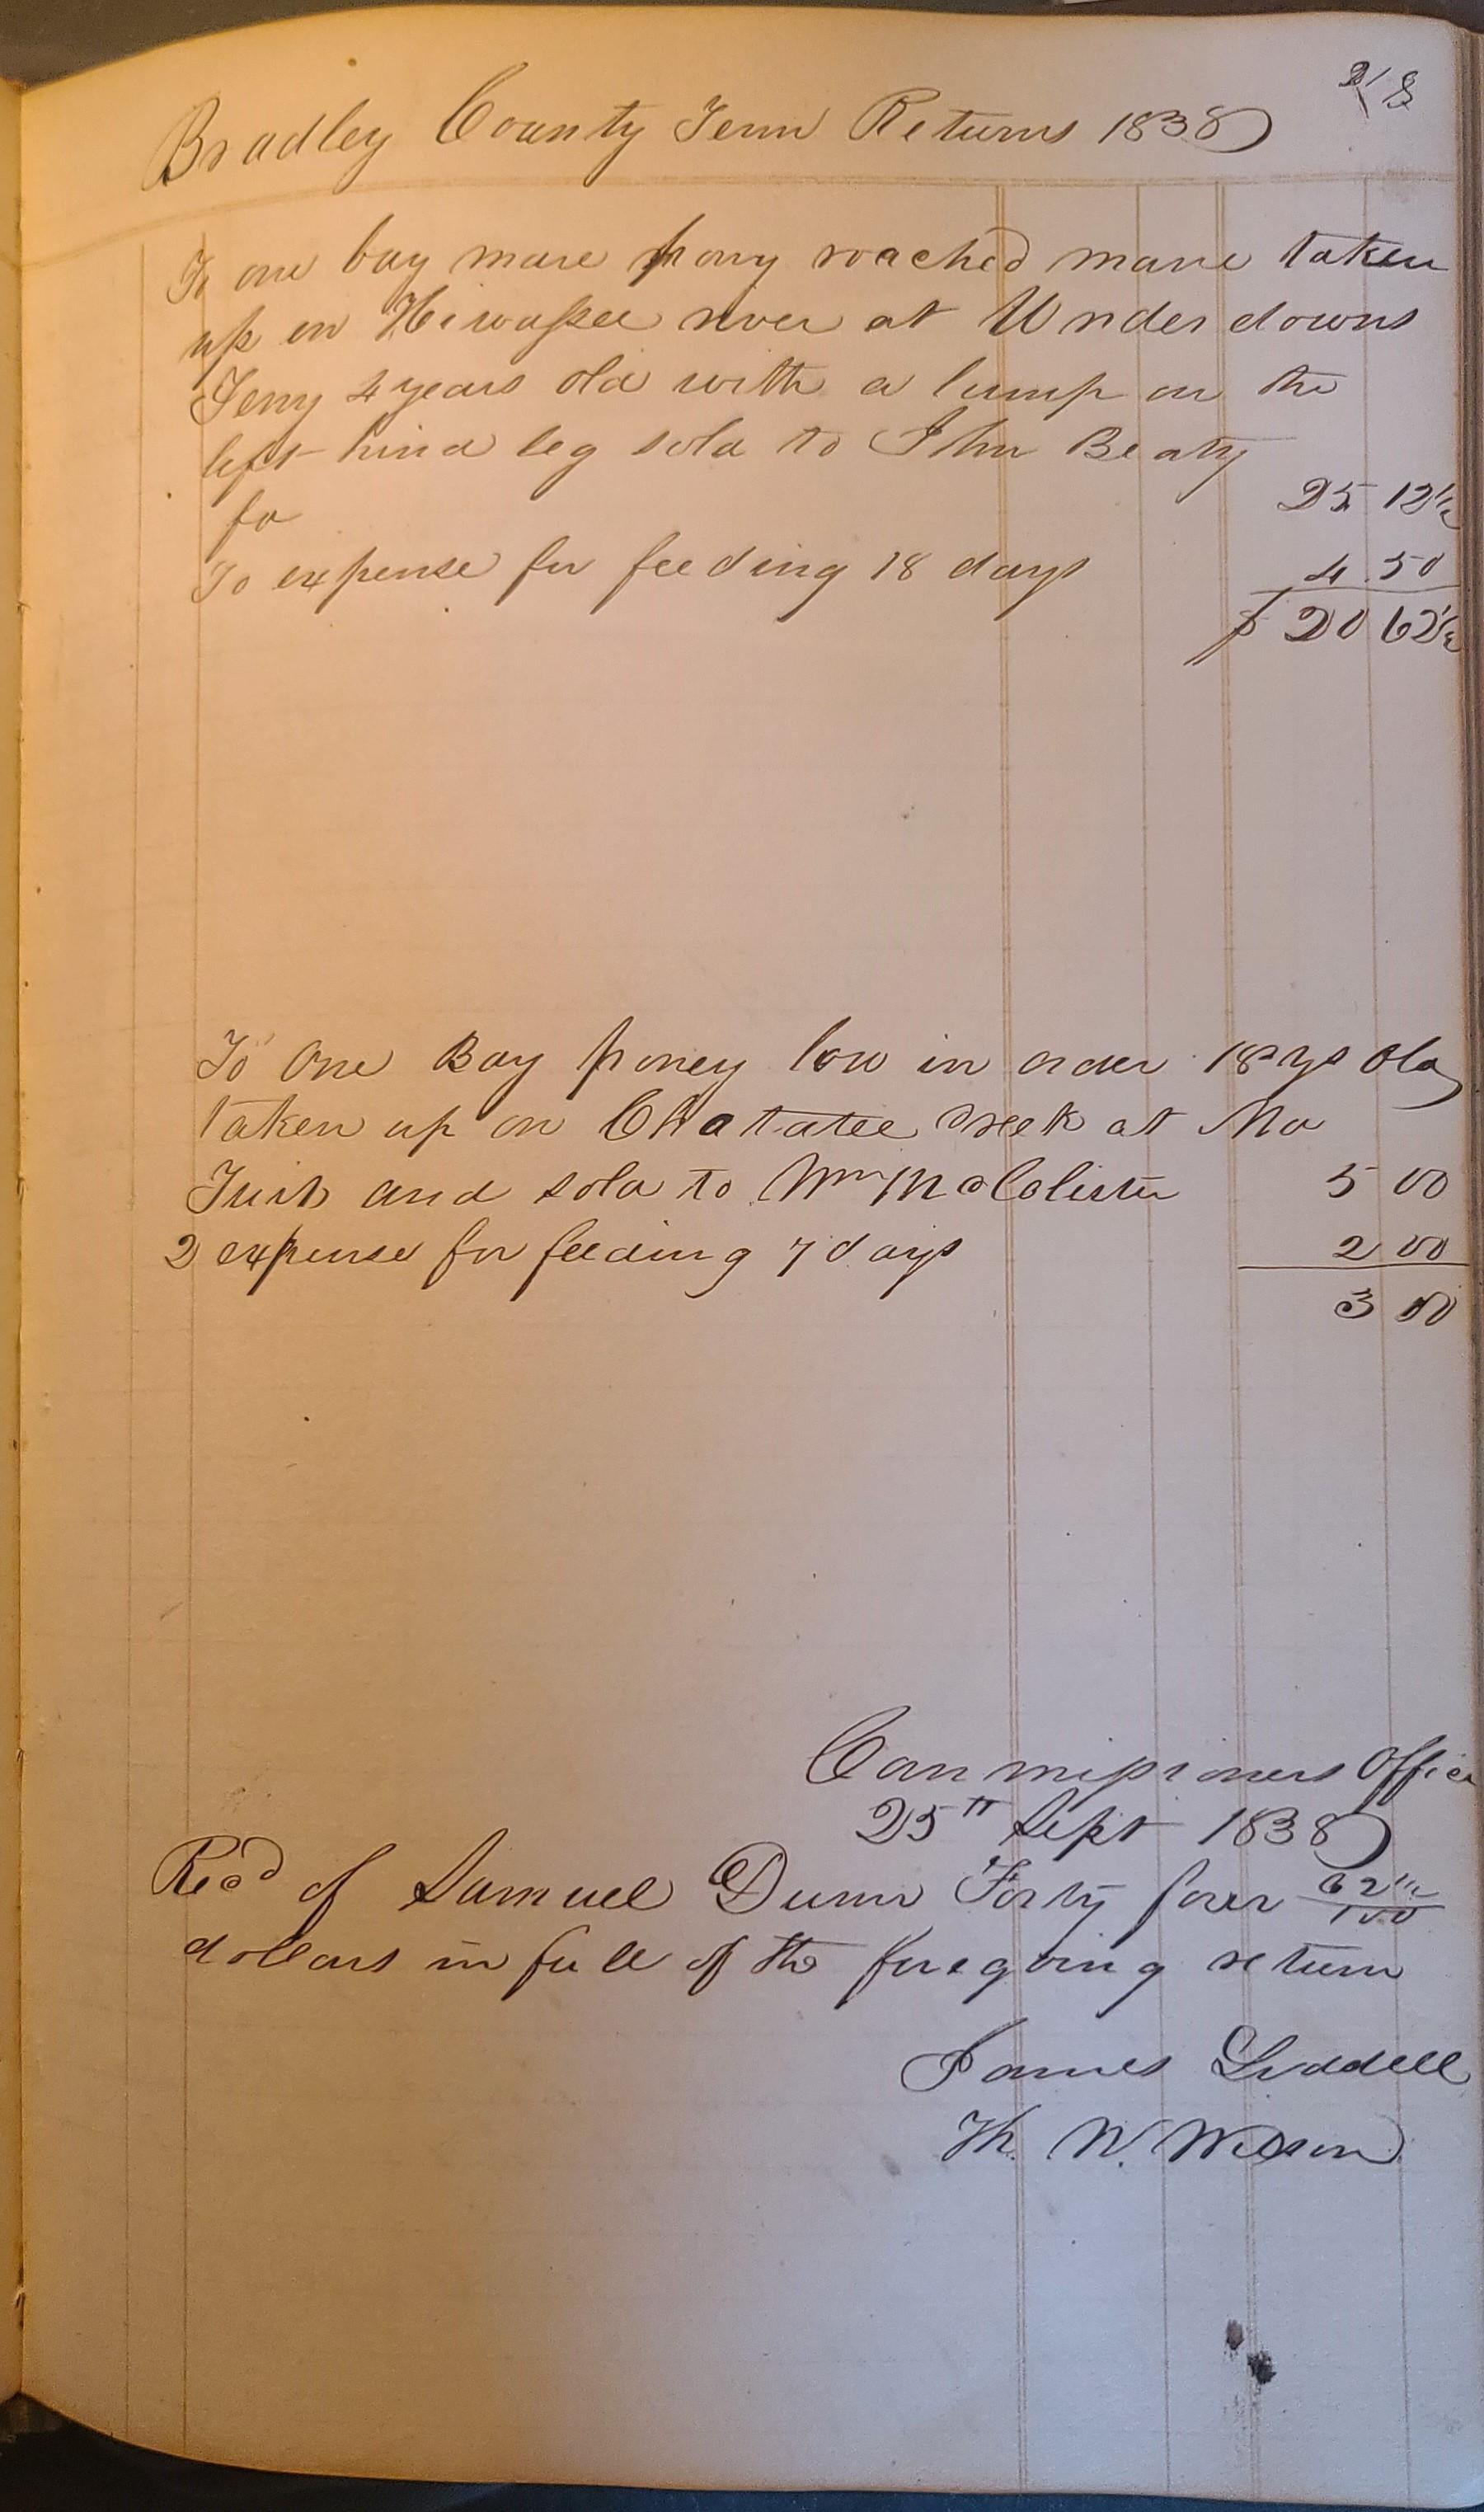 Bradley County Tenn Returns 1838
To one bay mare pony roached mane taken
up on Hiwassee river at Underdowns
Ferry 4 years old with a lump on the
left hind leg sold to John Beaty
for 25 12½
To expense for feeding 18 days 4.50
$ 20 62½
To One Bay poney low in order 18 ys old
taken up on Chatatee creek at
and sold to Wm McColister 5 00
2 expense for feeding 7 days 2 00
3 00
Commissioners Office
25th Sept 1838
Recd of Samuel Dunn Forty four 62½/100
dollars in full of the foregoing return
James Liddell
Th. W. Wilson